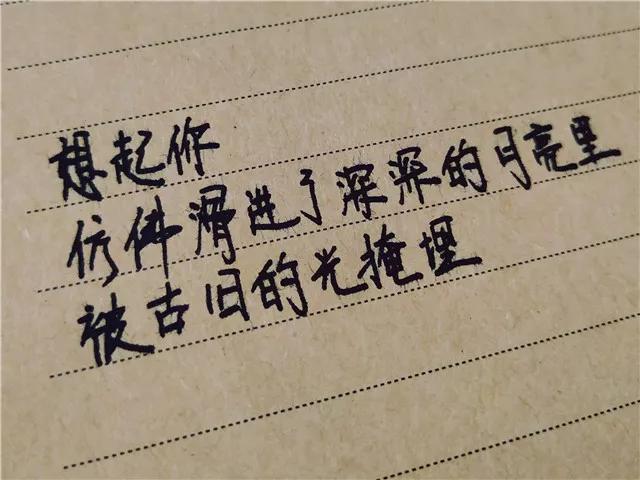 想起你
仿佛滑进了深深的月亮里
被古旧的光掩埋